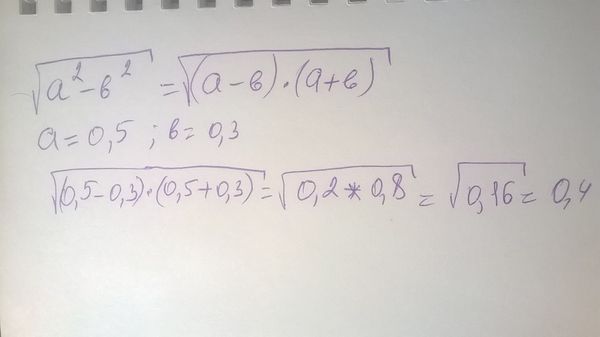 √(a² - в²) = √((a - в) · (a + в))
a = 0,5 ; в = 0,3
√((0,5 - 0,3) · (0,5 + 0,3)) = √(0,2 * 0,8) = √(0,16) = 0,4